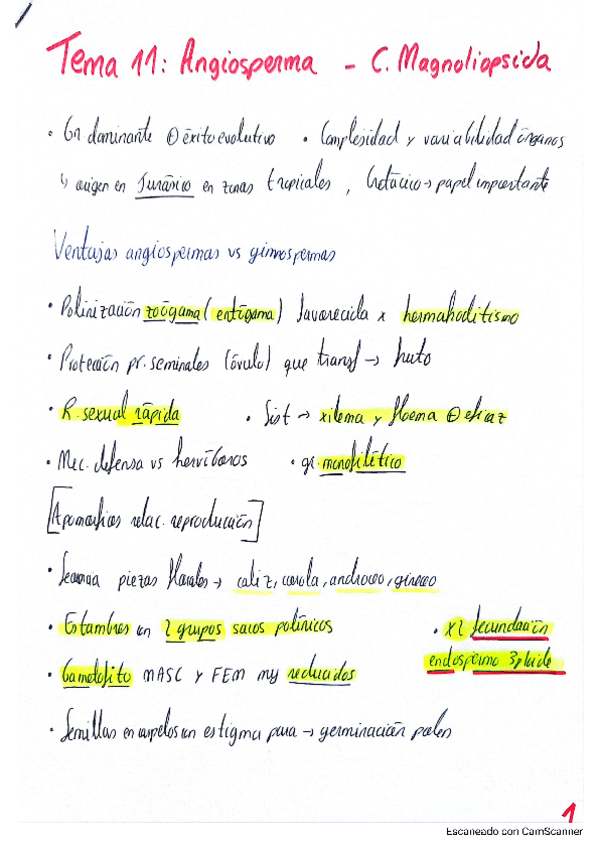 Tema 11: Angiosperma - C. Magnoliopsida
• Gr dominante ⊕ éxito evolutivo • Complejidad y variabilidad órganos
↳ origen en Jurásico en zonas tropicales, Cretácico → papel importante
Ventajas angiospermas vs gimnospermas
• Polinización zoógama (entógama) favorecida x hermafroditismo
• Protección pr. seminales (óvulo) que transf → fruto
• R. sexual rápida • Sist → xilema y floema ⊕ eficaz
• Mec. defensa vs hervíboros • gr. monofilético
[Apomorfías relac. reproducción]
• Secuencia piezas florales → caliz, corola, androceo, gineceo
• Estambres con 2 grupos sacos polínicos • x2 fecundación
endospermo 3ploide
• Gametofito MASC y FEM muy reducidos
• Semillas en carpelos con estigma para → germinación polen
1
Escaneado con CamScanner